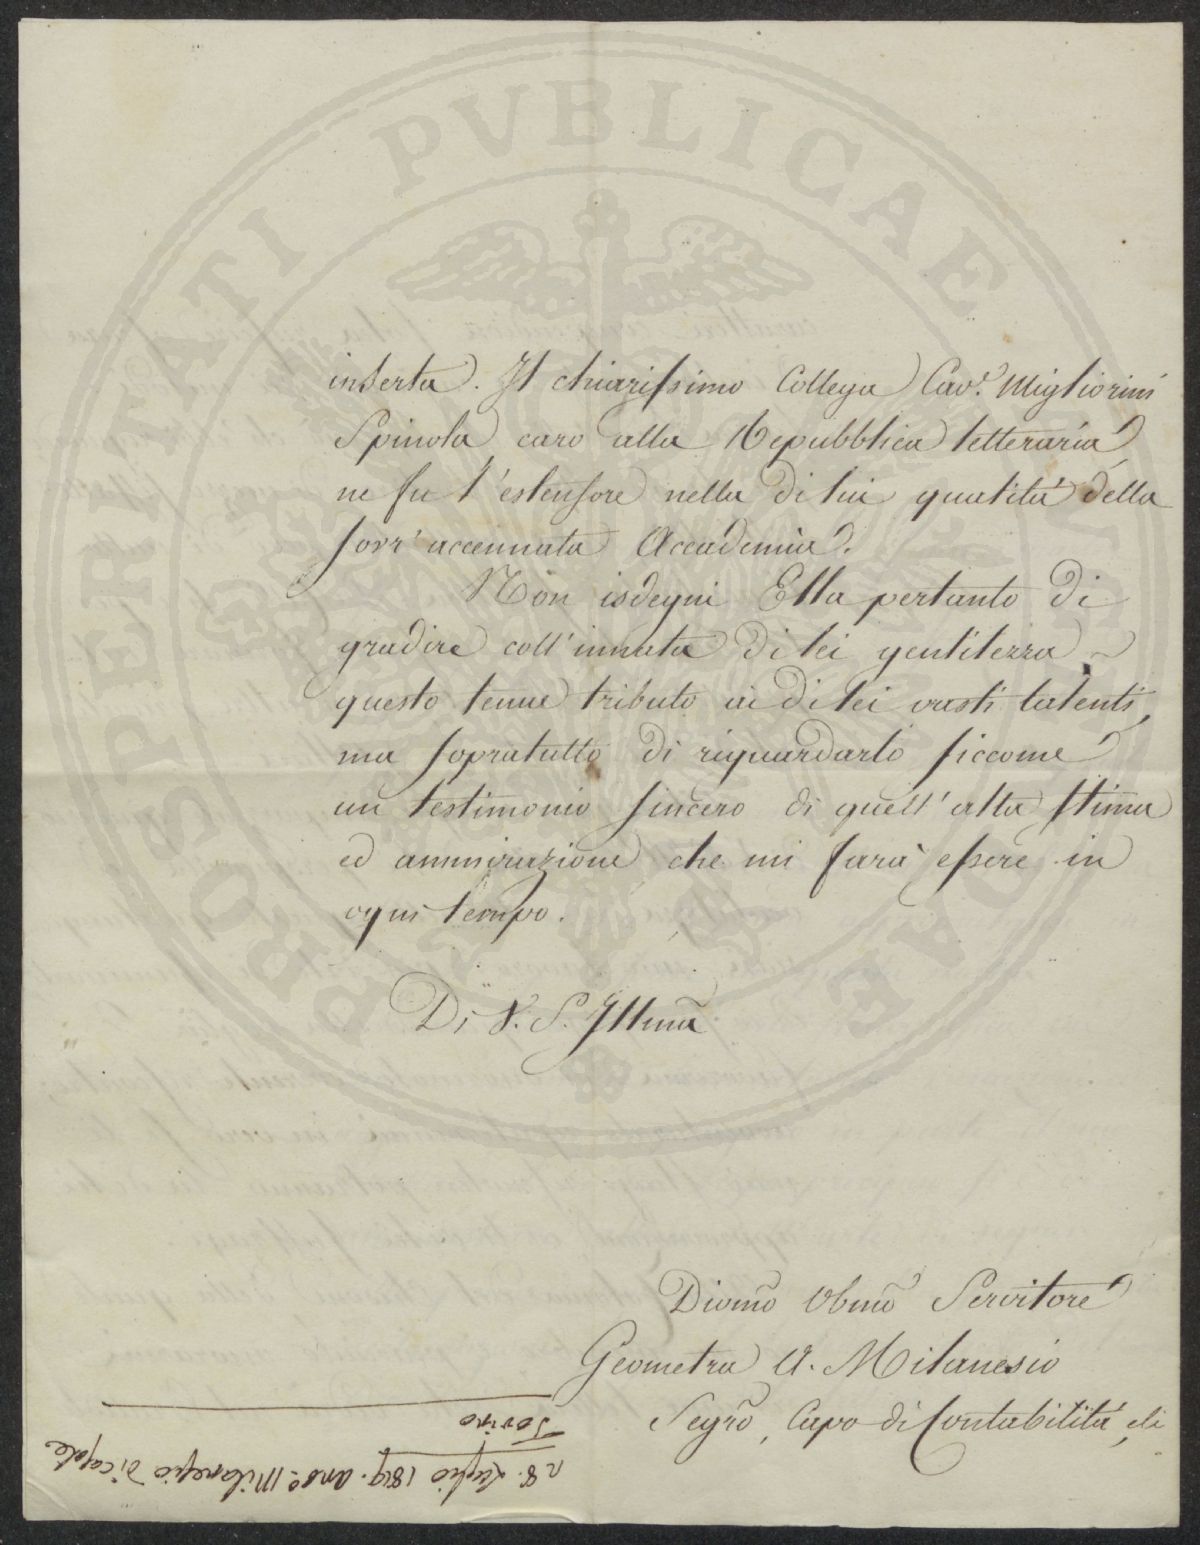 inserta. Il chiarissimo Collega Cav.e Migliorini
Spinola caro alla Repubblica letteraria
ne fu l'estensore nella di lui qualità della
sovr'accennata Accademia.
Non isdegni Ella pertanto di
gradire coll'innata di lei gentilezza
questo tenue tributo ai di lei vasti talenti,
ma sopratutto di riguardarlo siccome
un testimonio sincero di quell'alta stima
ed ammirazione che mi farà essere in
ogni tempo.
Di V. S. Illma
Divmo Obmo Servitore
Geometra A. Milanesio
Segro, Capo di Contabilità, di
28. Luglio 1819. Anto Milanesio di
Torino
PROSPERITATI PVBLICAE